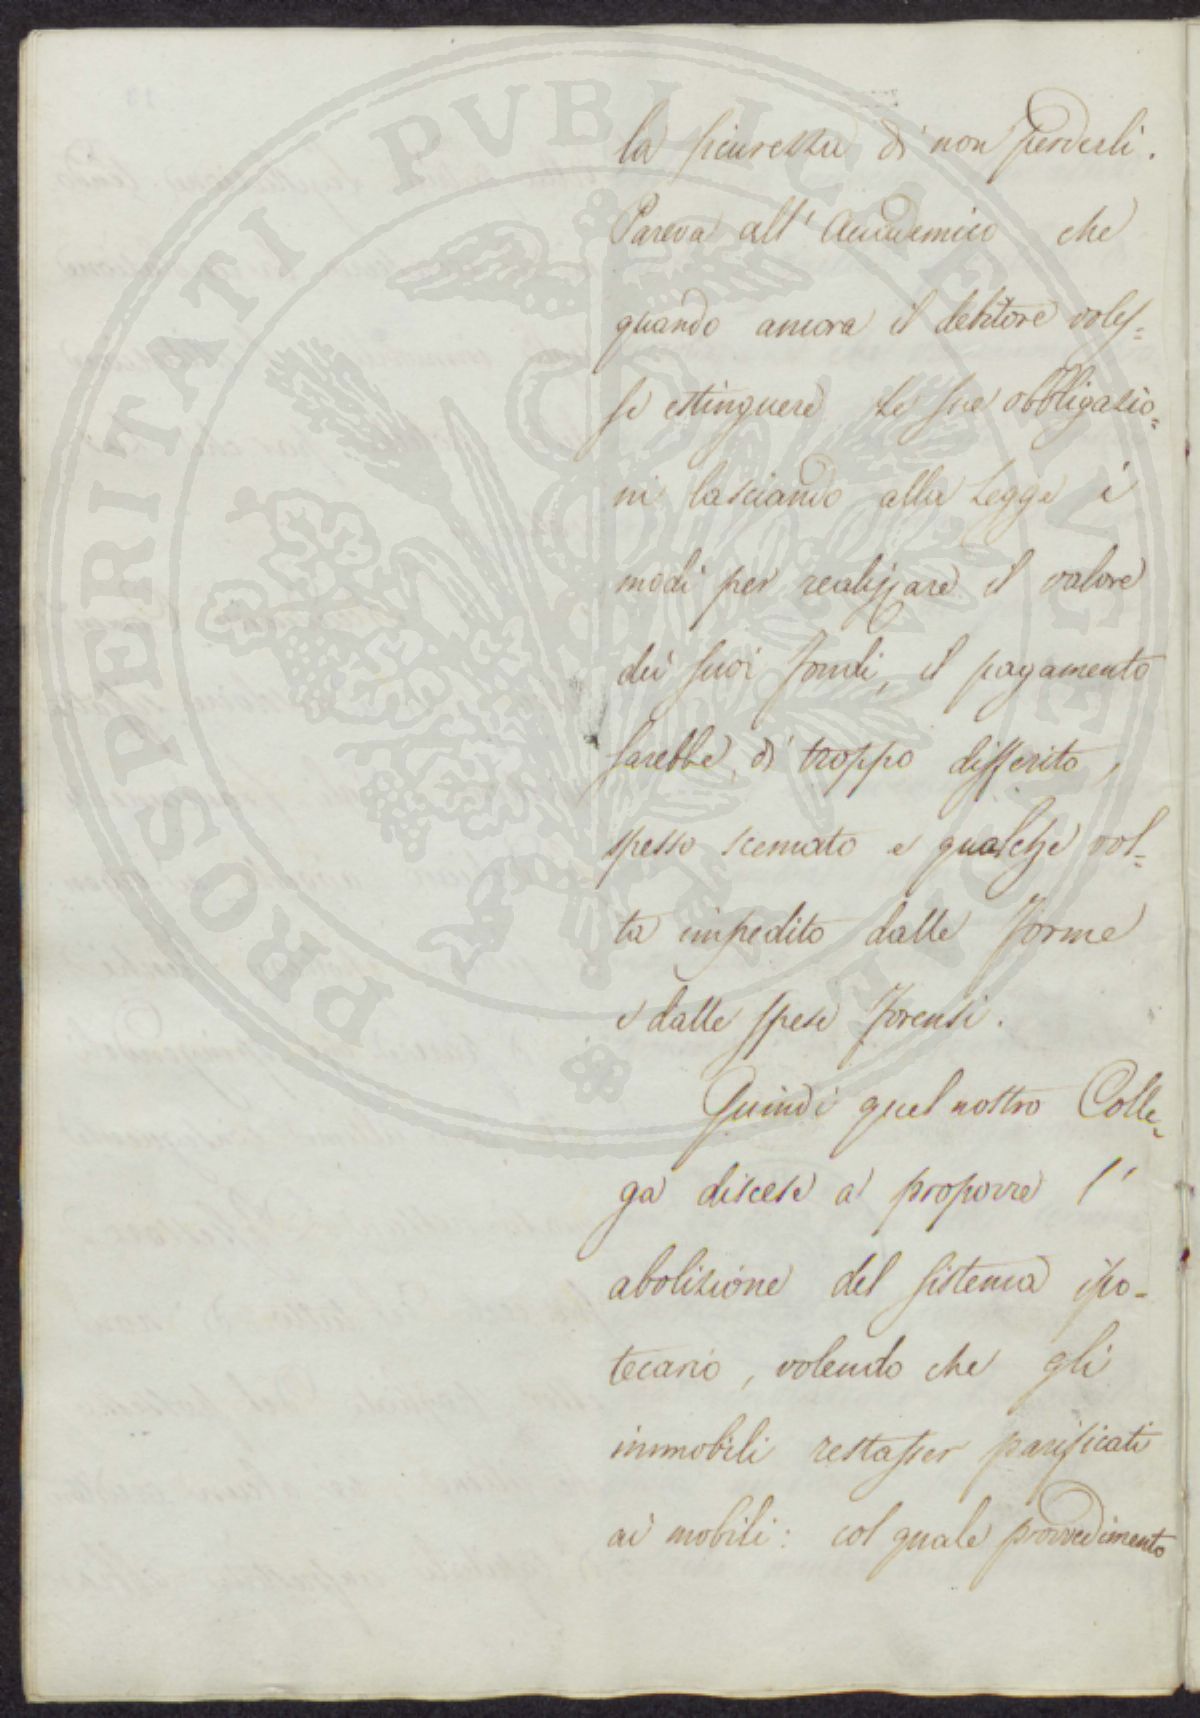 PROSPERITATI PVBLICAE AVGENDAE
la sicurezza di non perderli.
Pareva all' Accademico che
quando ancora il debitore voles=
se estinguere le sue obbligazio=
ni lasciando alla Legge i
modi per realizzare il valore
dei suoi fondi, il pagamento
sarebbe di troppo differito,
spesso scemato e qualche vol=
ta impedito dalle forme
e dalle spese forensi.
Quindi quel nostro Colle=
ga discese a proporre l'
abolizione del sistema ipo=
tecario, volendo che gli
immobili restasser parificati
ai mobili: col quale provvedimento